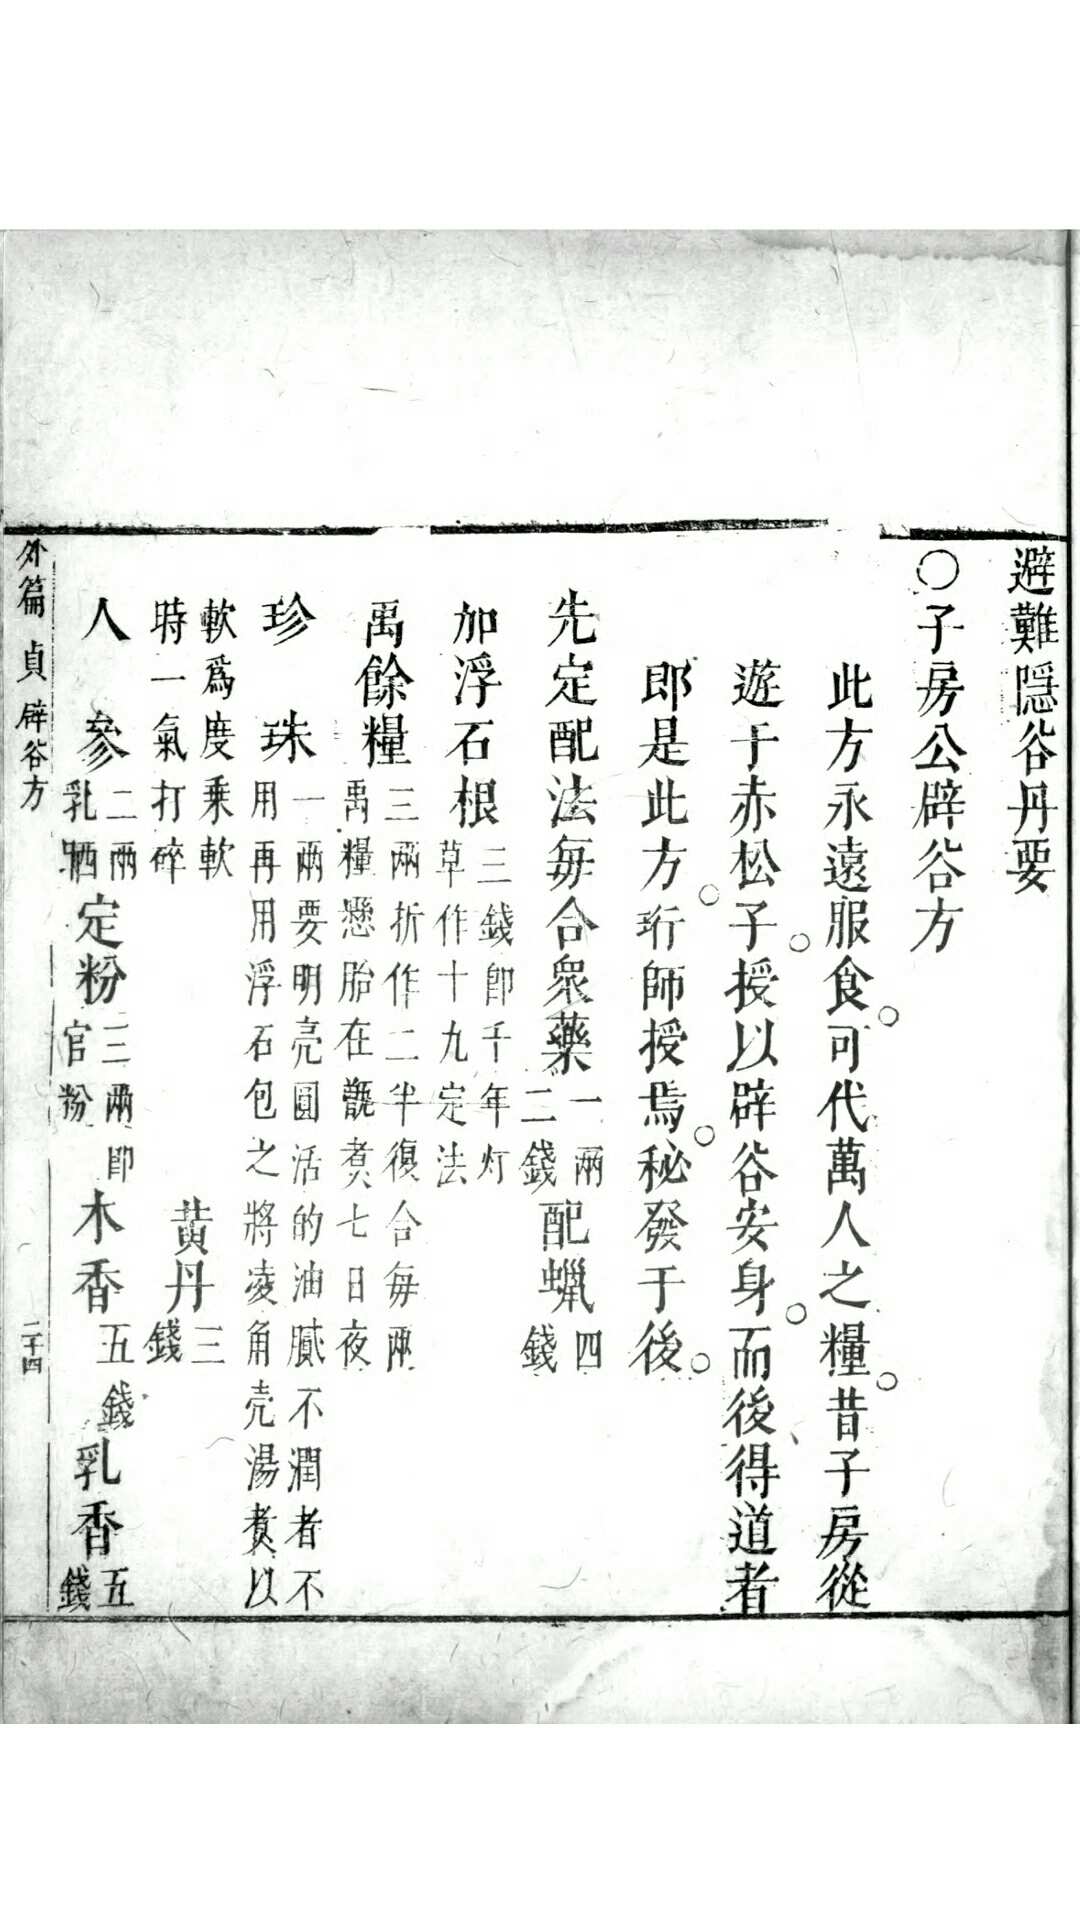 避難隱谷丹要
○子房公辟谷方
此方永遠服食。可代萬人之糧。昔子房從
遊于赤松子。授以辟谷安身。而後得道者
即是此方。珩師授焉。秘發于後。
先定配法每合衆藥一兩二錢配蠟四錢
加浮石根三錢即千年灯草作十九定法
禹餘糧三兩折作二半復合每兩禹糧懸胎在甑煮七日夜
珍珠一兩要明亮圓活的油膩不潤者不用再用浮石包之將凌角壳湯煑以
軟爲度乗軟時一氣打碎 黄丹三錢
人參二兩乳晒定粉二三兩即官粉木香五錢乳香五錢
外篇 貞 辟谷方 二十四